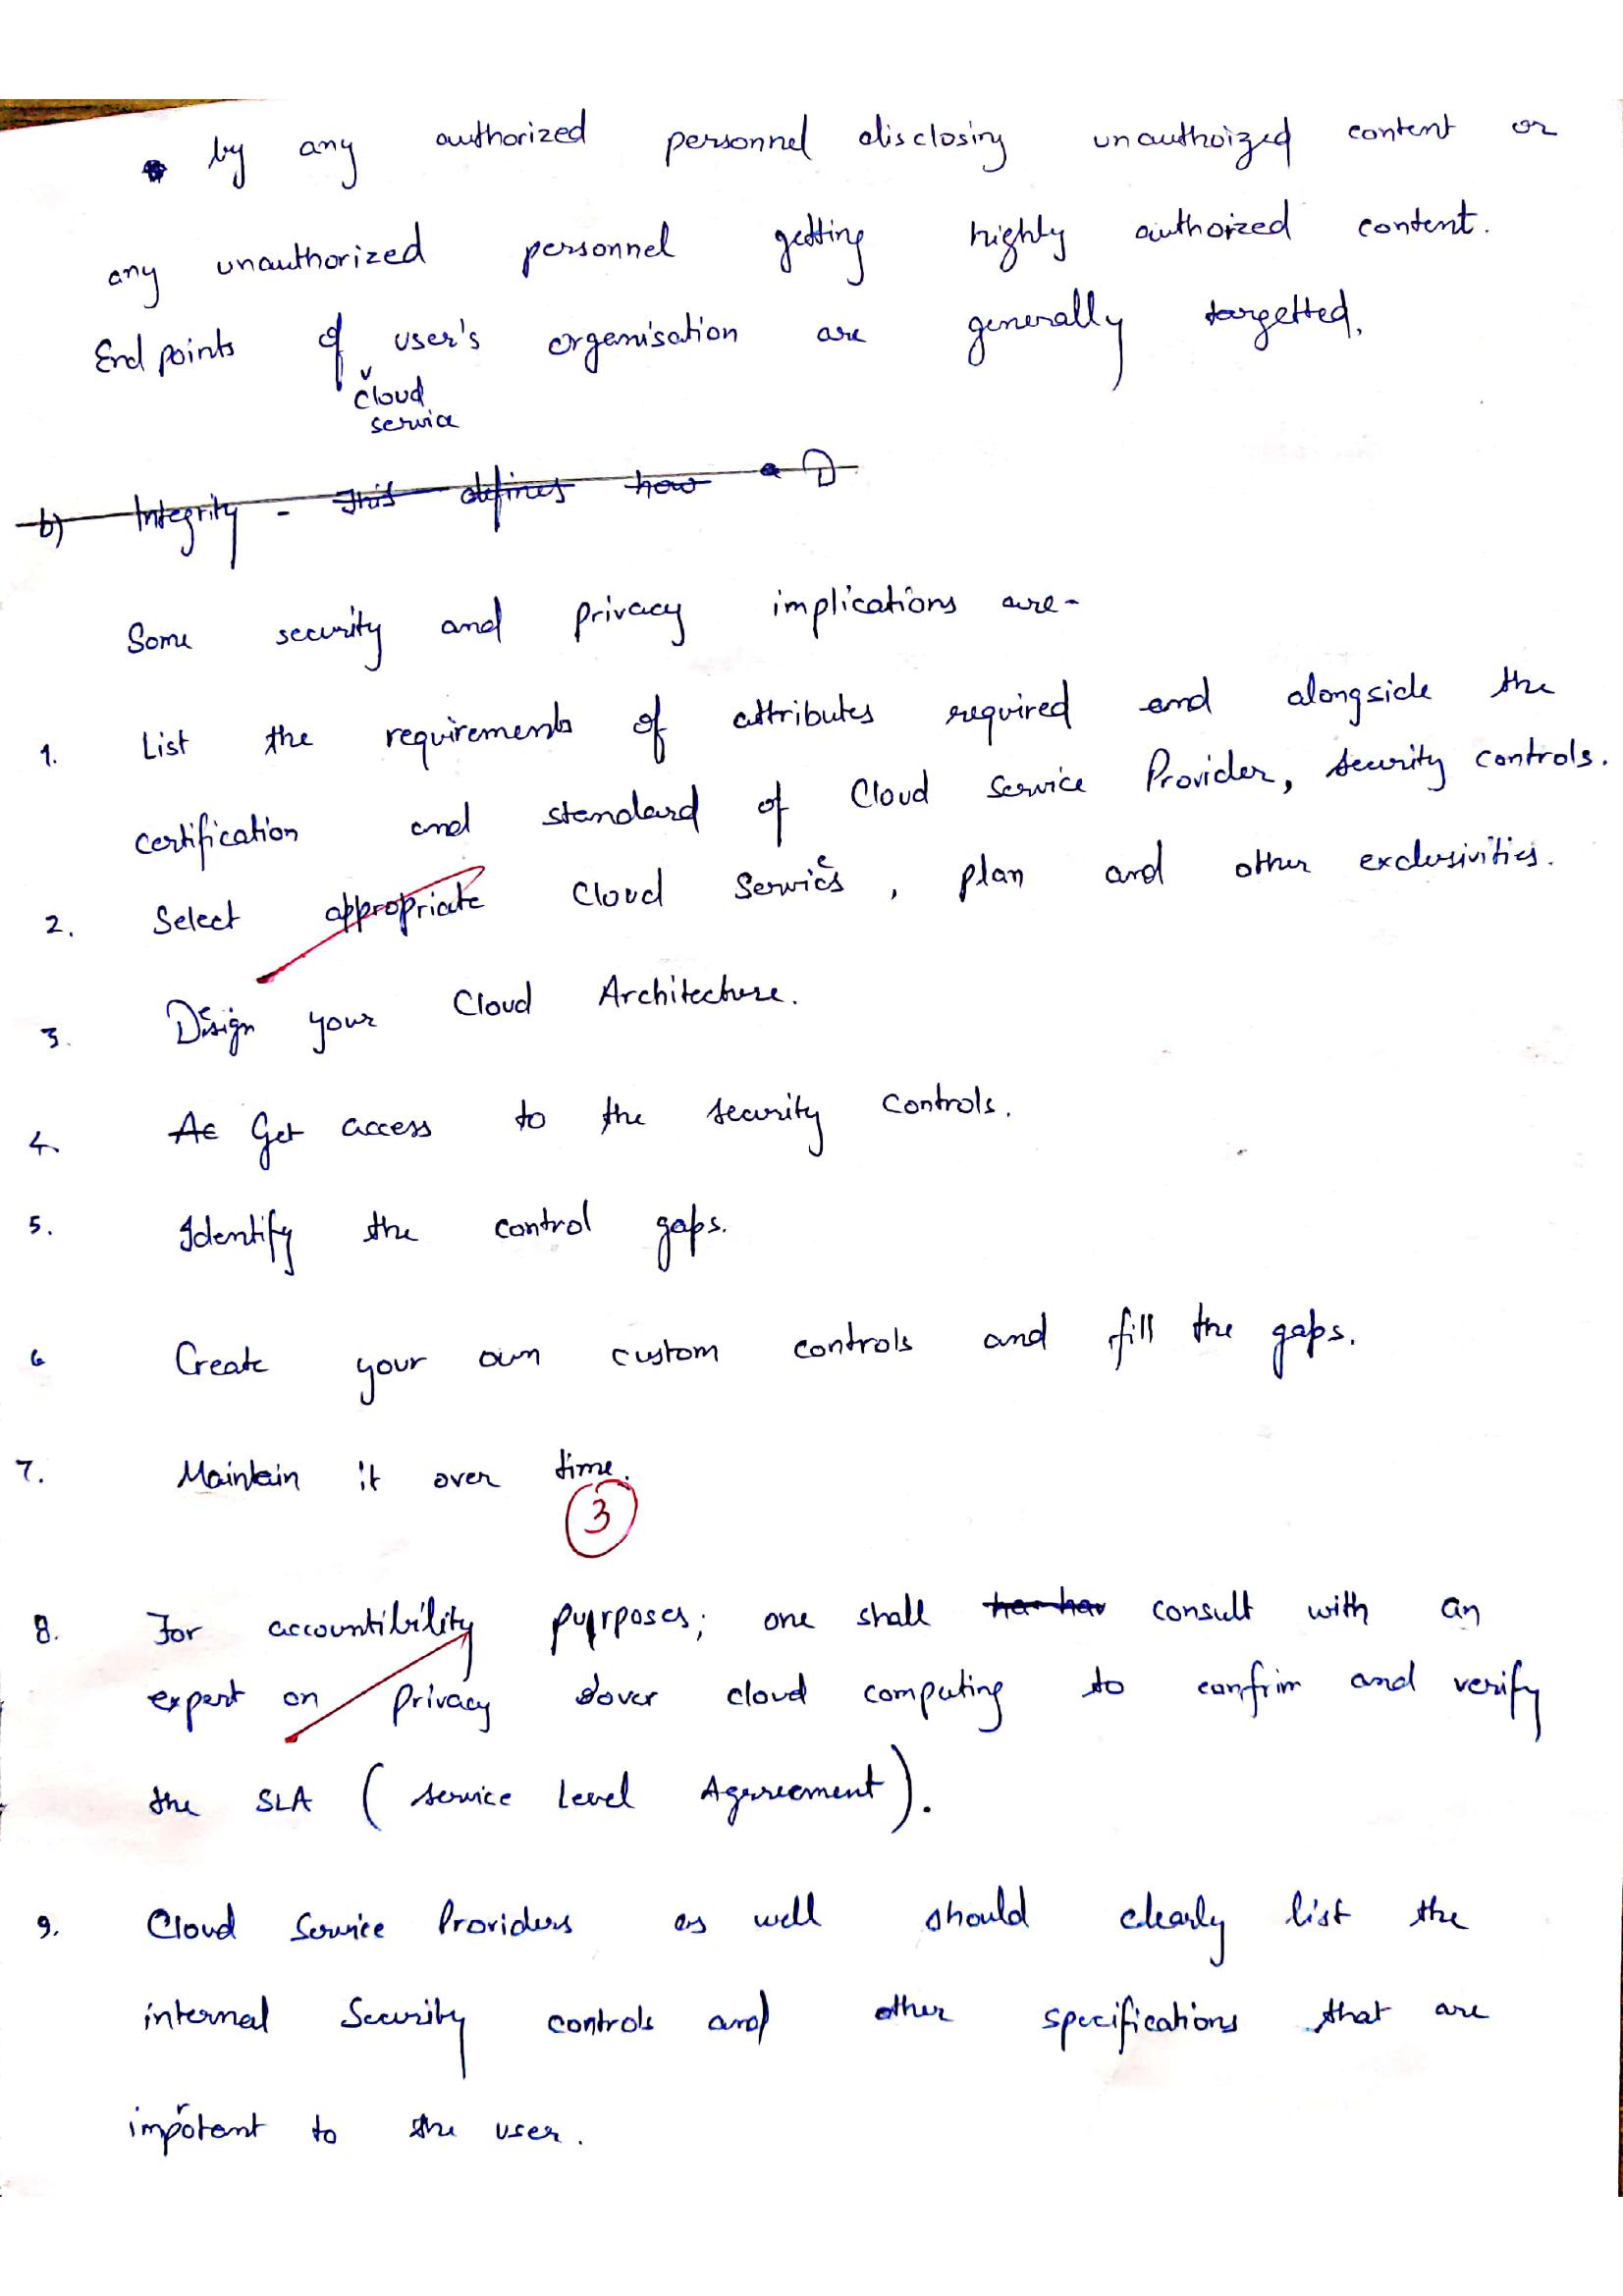 by any authorized personnel disclosing unauthoized content or
any unauthorized personnel getting highly authorized content.
End points of cloud service user's organisation are generally targetted.
b) Integrity - This defines how a D
Some security and privacy implications are-
1. List the requirements of attributes required and alongside the
certification and standard of Cloud Service Provider, security controls.
2. Select appropriate Cloud Service, plan and other exclusivities.
3. Design your Cloud Architecture.
4. Ac Get access to the security controls.
5. Identify the control gaps.
6 Create your own custom controls and fill the gaps.
7. Maintain it over time.
3
8. For accountibility puyrposes; one shall ha hav consult with an
expert on privacy over cloud computing to confrim and verify
the SLA (Service Level Agreement).
9. Cloud Service Providers as well should clearly list the
internal Security controls and other specifications that are
important to the user.